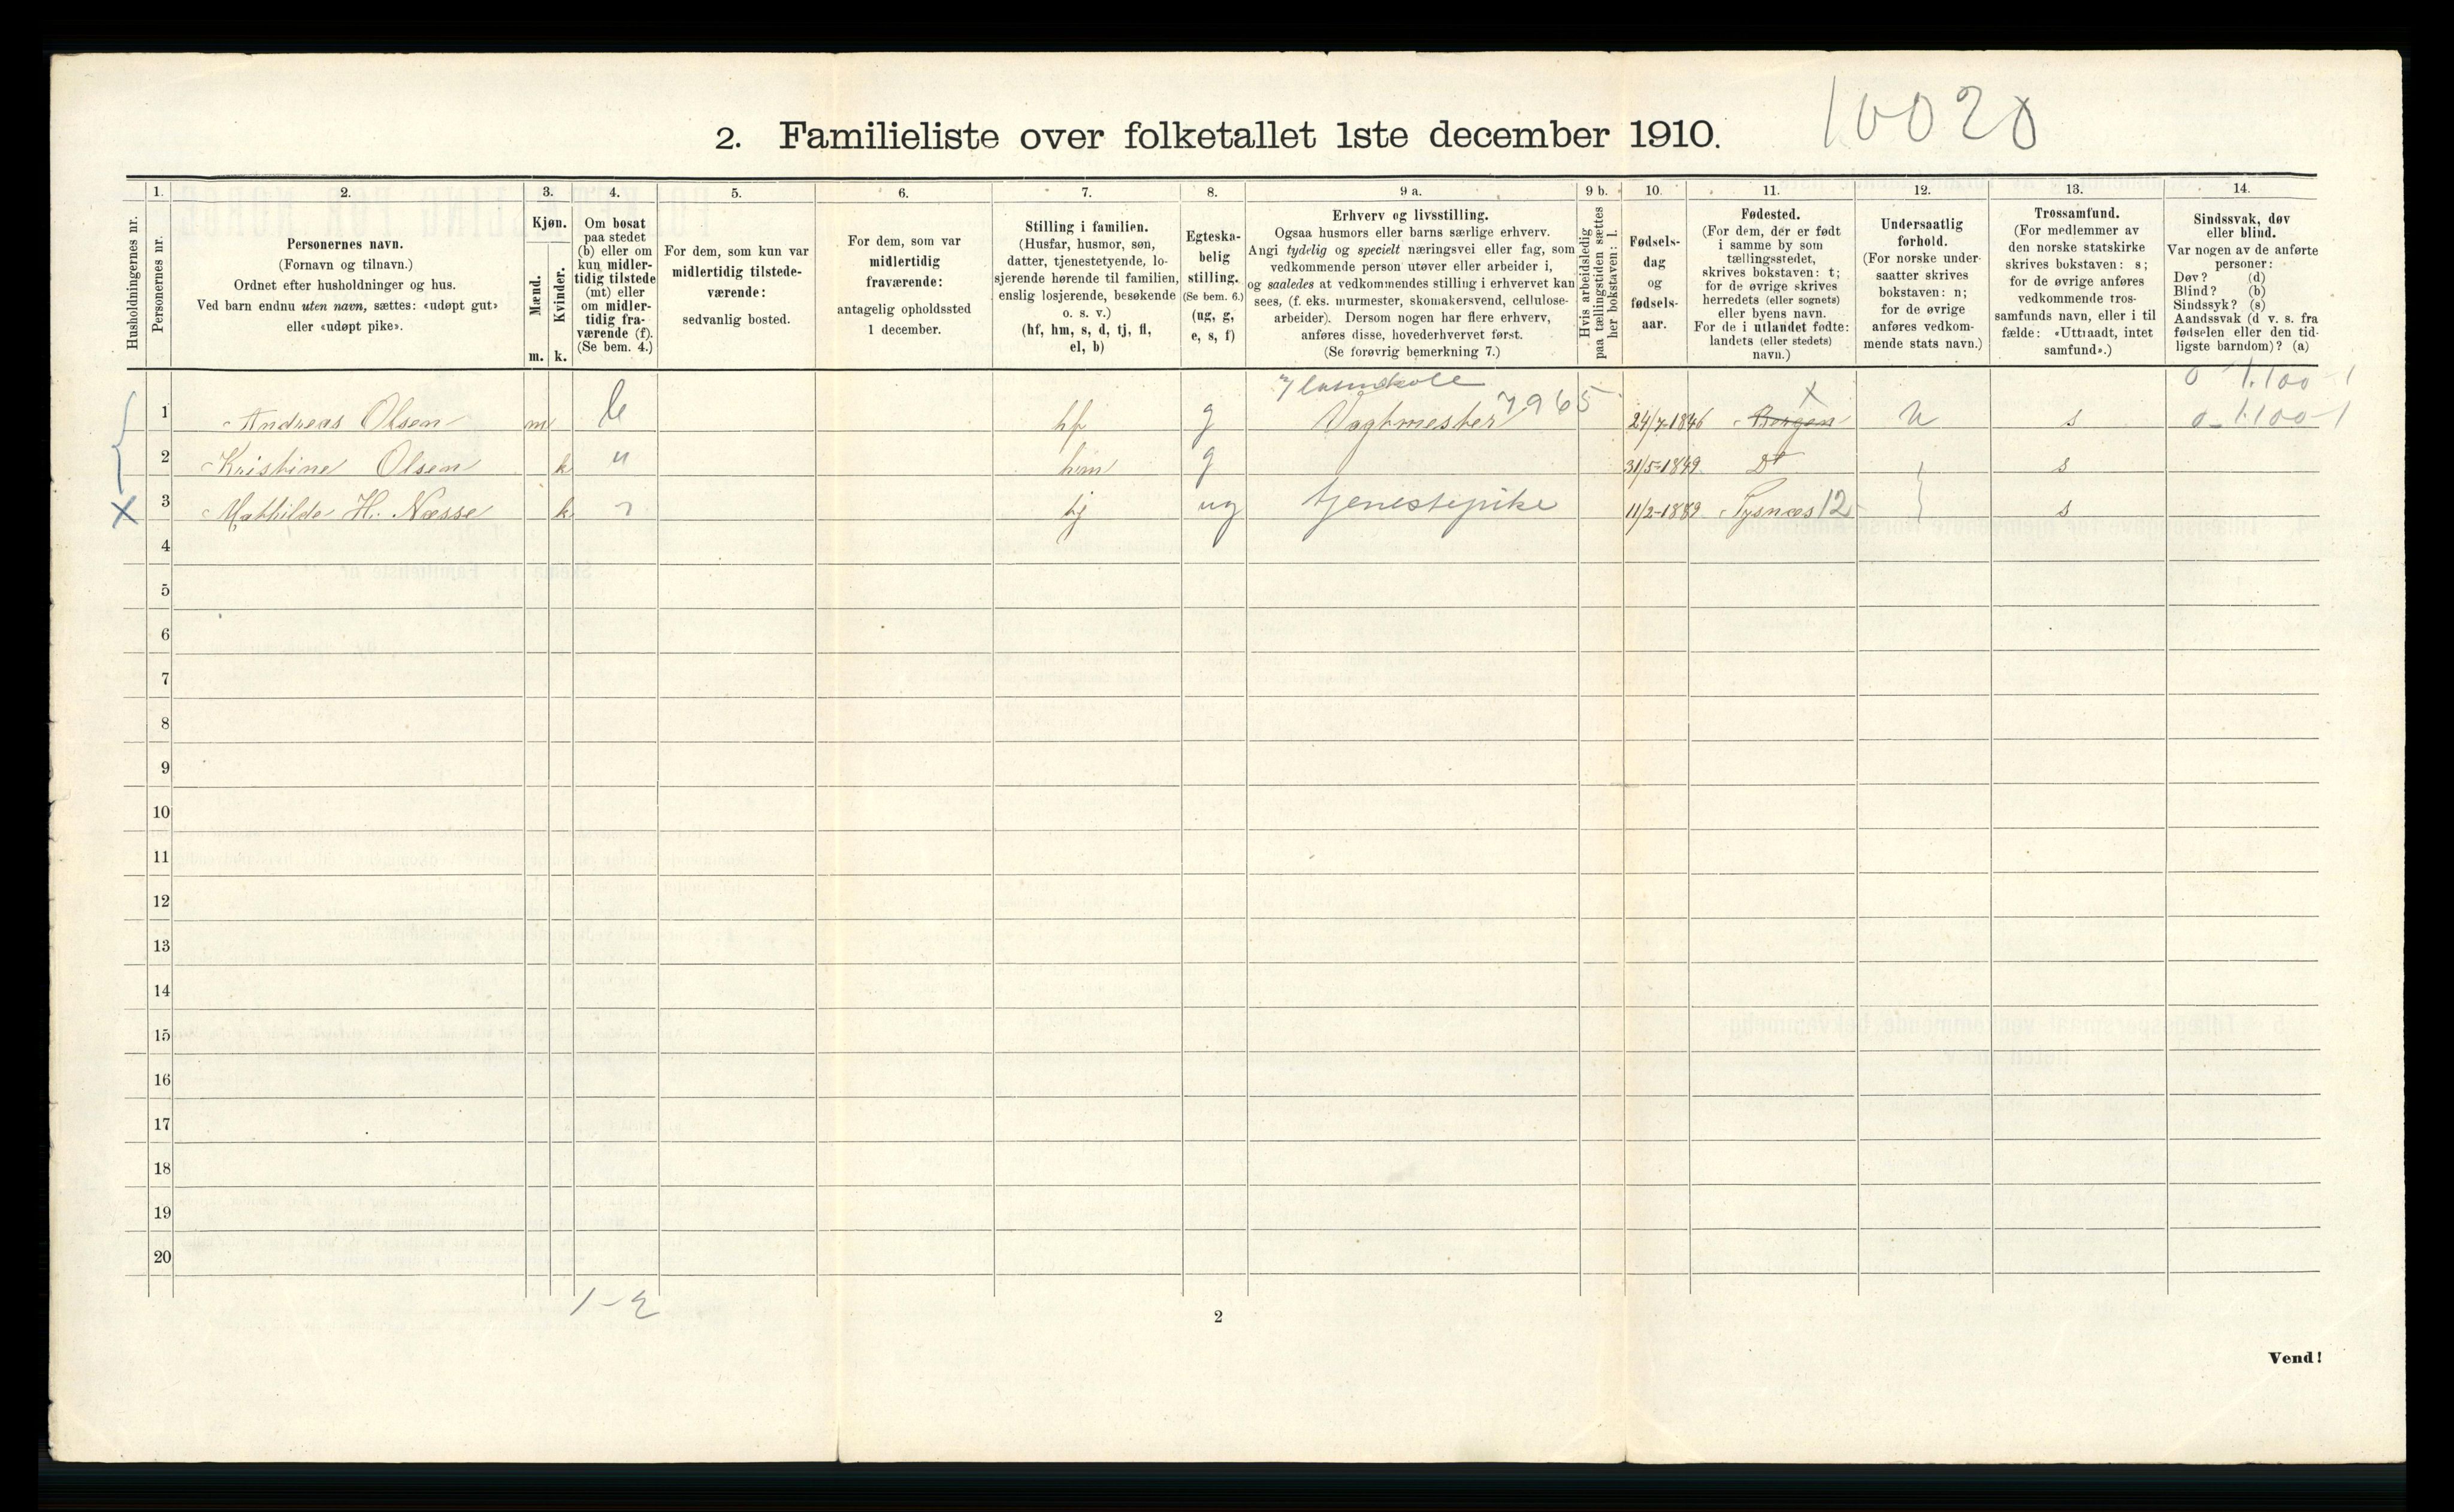 2. Familieliste over folketallet 1ste december 1910.
10020
1. 2. 3. 4. 5. 6. 7. 8. 9 a. 9 b. 10. 11. 12. 13. 14.
Husholdningernes nr.
Personernes nr.
Personernes navn.
(Fornavn og tilnavn.)
Ordnet efter husholdninger og hus.
Ved barn endnu uten navn, sættes: «udøpt gut»
eller «udøpt pike».
Kjøn.
Mænd.
Kvinder.
m. k.
Om bosat
paa stedet
(b) eller om
kun midler-
tidig tilstede
(mt) eller
om midler-
tidig fra-
værende (f).
(Se bem. 4.)
For dem, som kun var
midlertidig tilstede-
værende:
sedvanlig bosted.
For dem, som var
midlertidig
fraværende:
antagelig opholdssted
1 december.
Stilling i familien.
(Husfar, husmor, søn,
datter, tjenestetyende, lo-
sjerende hørende til familien,
enslig losjerende, besøkende
o. s. v.)
(hf, hm, s, d, tj, fl,
el, b)
Egteska-
belig
stilling.
(Se bem. 6.)
(ug, g,
e, s, f)
Erhverv og livsstilling.
Ogsaa husmors eller barns særlige erhverv.
Angi tydelig og specielt næringsvei eller fag, som
vedkommende person utøver eller arbeider i,
og saaledes at vedkommendes stilling i erhvervet kan
sees, (f. eks. murmester, skomakersvend, cellulose-
arbeider). Dersom nogen har flere erhverv,
anføres disse, hovederhvervet først.
(Se forøvrig bemerkning 7.)
Hvis arbeidsledig
paa tællingstiden sættes
her bokstaven: l.
Fødsels-
dag
og
fødsels-
aar.
Fødested.
(For dem, der er født
i samme by som
tællingsstedet,
skrives bokstaven: t;
for de øvrige skrives
herredets (eller sognets)
eller byens navn.
For de i utlandet fødte:
landets (eller stedets)
navn.)
Undersaatlig
forhold.
(For norske under-
saatter skrives
bokstaven: n;
for de øvrige
anføres vedkom-
mende stats navn.)
Trossamfund.
(For medlemmer av
den norske statskirke
skrives bokstaven: s;
for de øvrige anføres
vedkommende tros-
samfunds navn, eller i til
fælde: «Uttraadt, intet
samfund».)
Sindssvak, døv
eller blind.
Var nogen av de anførte
personer:
Døv? (d)
Blind? (b)
Sindssyk? (s)
Aandssvak (d v. s. fra
fødselen eller den tid-
ligste barndom)? (a)
0 1.100-1
1 Andreas Olsen m b hf g Vagtmester 7965 24/7-1846 Bergen x n s 0-1.100-1
2 Kristine Olsen k " hm g 31/5-1849 Do s
x 3 Mathilde H. Næsse k " tj ug tjenestepike 11/2-1889 Tysnæs 12 s
4
5
6
7
8
9
10
11
12
13
14
15
16
17
18
19
20
1-2
2
Vend!